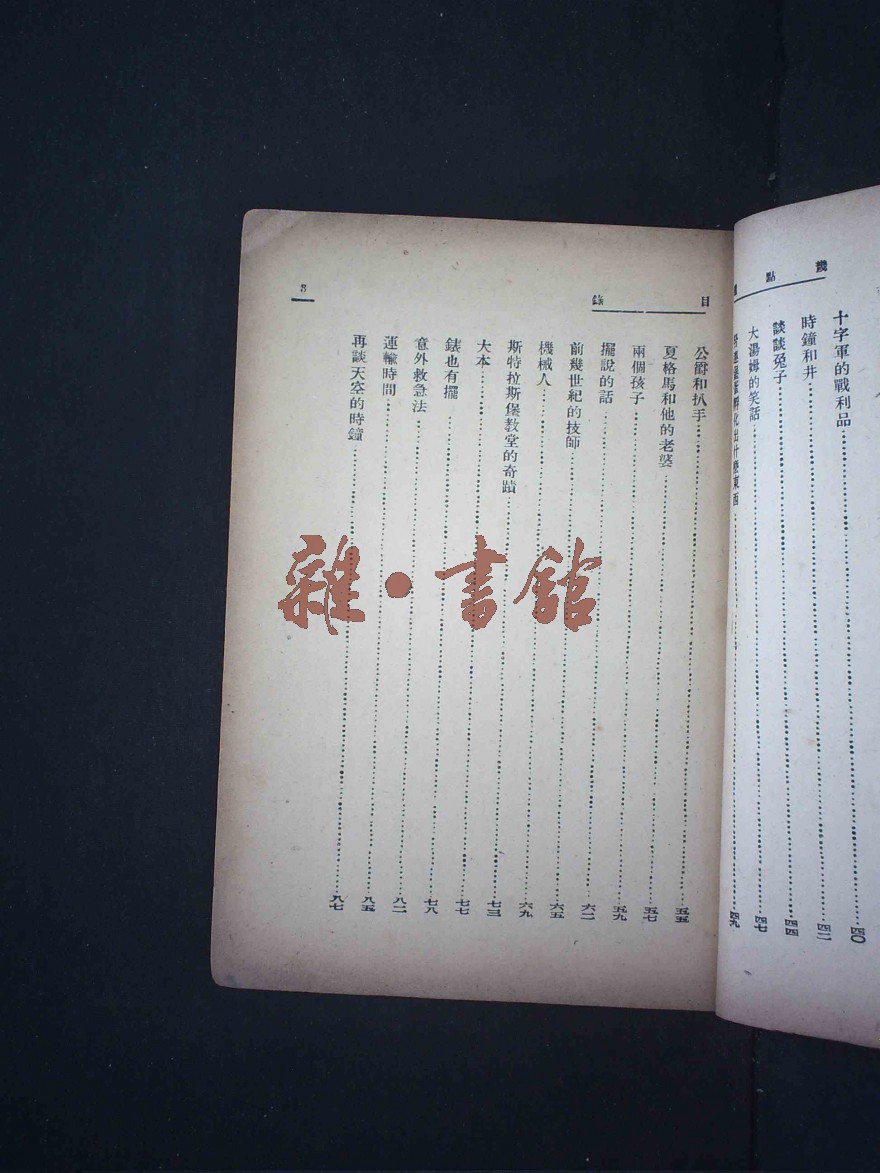 幾點
十字軍的戰利品 四〇
時鐘和井 四二
談談兔子 四四
大湯姆的笑話 四七
孵化出什麼東西 四九
目錄
公爵和扒手 五五
夏格馬和他的老婆 五七
兩個孩子 五九
擺說的話 六二
前幾世紀的技師 六五
機械人 六九
斯特拉斯堡教堂的奇蹟 七三
大本 七七
錶也有擺 七八
意外救急法 八二
運輸時間 八五
再談天空的時鐘 八七
3
雜·書館